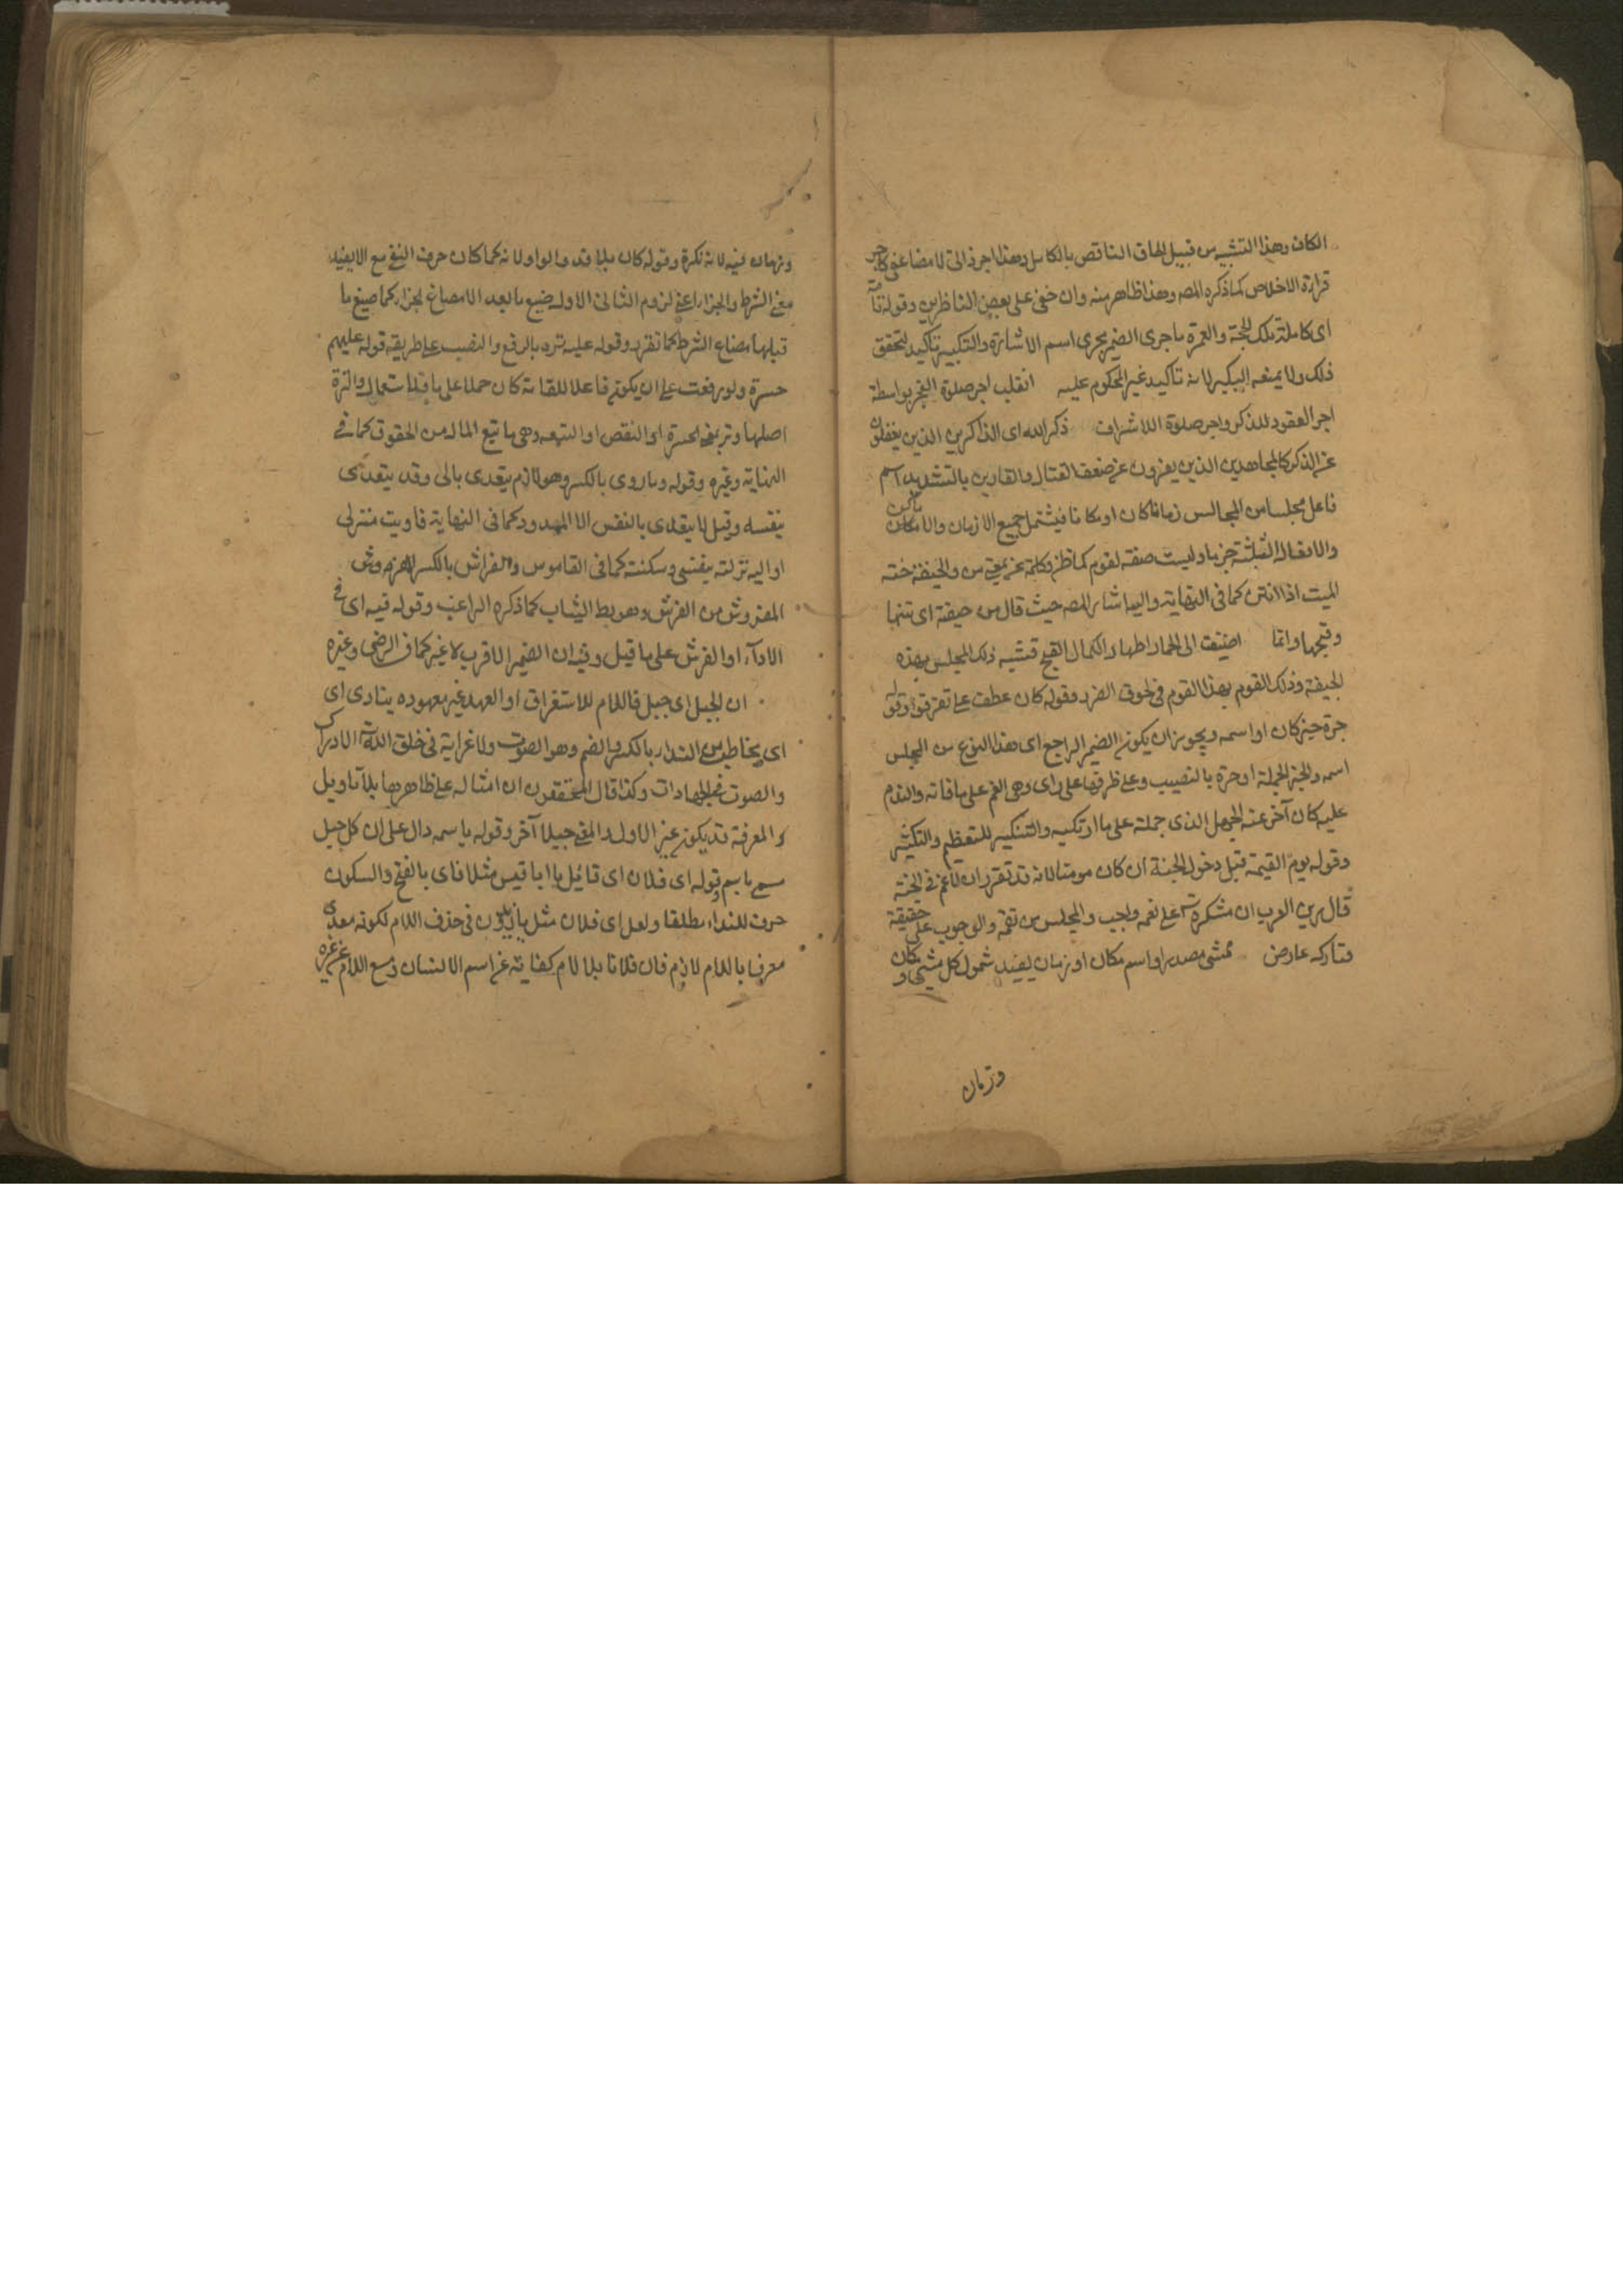 الكاف وهذا التشبيه من قبيل الحاق الناقص بالكامل وهذا اجر ذاتى لا مضاعف كاجر
قراءة الاخلاص كما ذكره المصـ وهذا ظاهر منه وان خفى على بعض الناظرين وقوله تامة
اى كاملة تلك الحجة والعمرة ما جرى الضمير مجرى اسم الاشارة والتكبير تأكيد لتحقق
ذلك ولا يمنعه لانه تاكيد غير المحكوم عليه انقلب اجر صلوة الفجر بواسطة
اجر العقود للذكر واجر صلوة الاشراف ذكر الله اى الذاكرين الذين يغفلون
عن الذكر كالمجاهدين الذين يفرون عن ضعف القتال والقارين بالتشديد اسم
فاعل مجلسا من المجالس زمانا كان او مكانا فيشتمل جميع الازمان والاماكن
والافعال الثلثة جزما وليست صفة لقوم كما ظن وكلمة عن بمعنى من والجيفة جثة
الميت اذا انتن كما فى النهاية واليه اشار المصـ حيث قال من جيفة اى نتنها
وقبحها وانما اضيفت الى الحمار اظهارا لكمال القبح فتشبيه ذلك المجلس بهذه
الجيفة وذلك القوم بهذا القوم فى لحوق الضرر وقوله كان عطف على تفرقوا وقوله
حسرة خبر كان او اسمه ويجوز ان يكون الضمير الراجع اى هذا النوع من المجلس
اسمه والخبر الجملة او حسرة بالنصب وعلى ظرفها على راى وهى الغم على ما فاته والندم
عليه كان آخر عنه الجهل الذى حمله على ما ارتكبه والتنكير للتعظيم والتكثير
وقوله يوم القيمة قبل دخول الجنة ان كان مومنا لانه قد تقرر ان لا غم فى الجنة
قال بن العرب ان شكره تعـ على نعمه واجب والمجلس من نعمه والوجوب على حقيقة
وتاركه عارض ممشى مصدر او اسم مكان او زمان يفيد شمول كل مشى ومكان
وزمان
وزمان فيه لانه نكرة وقوله كان بلا قد والواو لانه كما كان حرف النفى مع الا يفيد
معنى الشرط والجزاء اعنى لزوم الثانى الاول صيغ ما بعد الا مصاغ الجزاء كما صيغ ما
قبلها مصاغ الشرط كما تقرر وقوله عليه ترد بالرفع والنصب على طريقة قوله عليهم
حسرة ولو رفعت على ان يكون فاعلا للقا ته كان حملا على ما قل استعماله والترة
اصلها وتر بمعنى الحسرة او النقص او التبعه وهى ما تتبع المال من الحقوق كما فى
النهاية وغيره وقوله وما روى بالكسر وهو لازم يتعدى بالى وقد يتعدى
بنفسه وقيل لا يتعدى بالنفس الا الممدود كما فى النهاية فاويت منزلى
او اليه نزلته بنفسى وسكنته كما فى القاموس والفراش بالكسر
المفروش من الفرش وهو بسط الثياب كما ذكره الراغب وقوله فيه اى فى
الاداء او الفرش على ما قيل وفيه ان الضمير للاقرب لا غير كما فى الرضى وغيره
ان الجبل اى جبل فاللام للاستغراق او العهد غير معهوده ينادى اى
اى يخاطب من النداء بالكسر والضم وهو الصوت ولا غرابة فى خلق الله تعـ الادراك
والصوت فى الجهادات وكذا قال المحققون ان امثاله على ظاهرها بلا تاويل
والمعرفة قد يكون غير الاول والمعنى جبلا آخر وقوله باسمه دال على ان كل جبل
مسمى باسم وقوله اى فلان اى قائل يا ابا قيس مثلا فاى بالفتح والسكون
حرف للنداء مطلقا ولعل اى فلان مثل يا زيدون فى حذف اللام لكونه معدى
معرفا باللام لازم فان فلانا بلا لام كناية عن اسم الانسان ومع اللام عن غيره